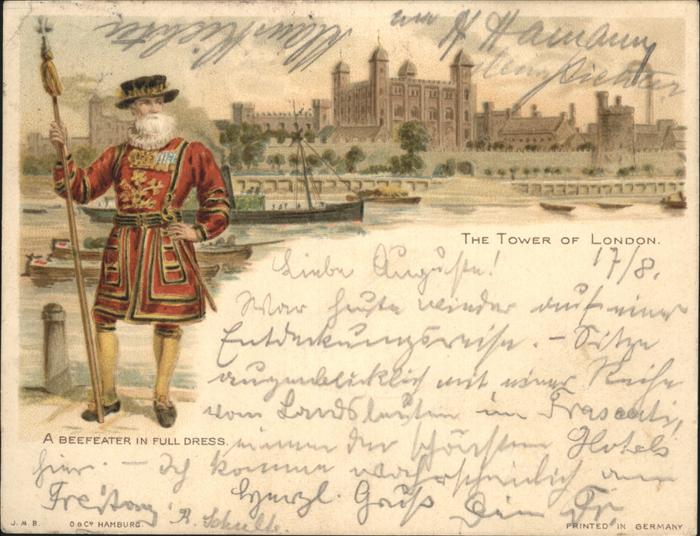 Klaus Richter
H. Hamann
Henny Richter
THE TOWER OF LONDON.
17/8.
Liebe Auguste!
War heute wieder auf einer
Entdeckungsreise. – Sitze
augenblicklich mit einer Reihe
von Landsleuten im Frascati,
einem der schönsten Hotels
hier. – Ich komme wahrscheinlich am
Freitag. Herzl. Gruß Dein Fr.
R. Schulte.
A BEEFEATER IN FULL DRESS.
J. M. B. O & Co HAMBURG
PRINTED IN GERMANY